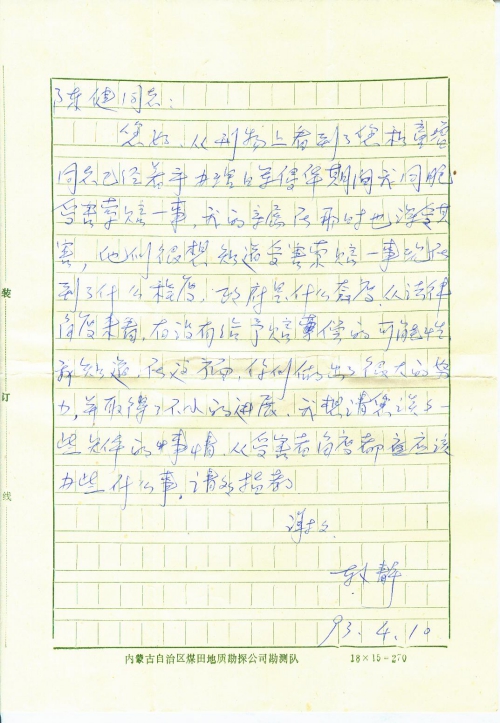 陈健同志：
您好，从刊物上看到了您和童增
同志已经着手办理日军侵华期间我同胞
受害索赔一事，我的亲属在那时也深受其
害，他们很想知道受害索赔一事
到了什么程度，政府是什么态度，从法律
角度来看，有没有给予赔偿的可能性
在这方面，你们做出了很大的努
力，并取得了不小的进展，我想请您谈
一些具体的事情，从受害者角度都应该
办些什么事，请
93.4.10
内蒙古自治区煤田地质勘探公司勘测队
18×15-270
装
订
线